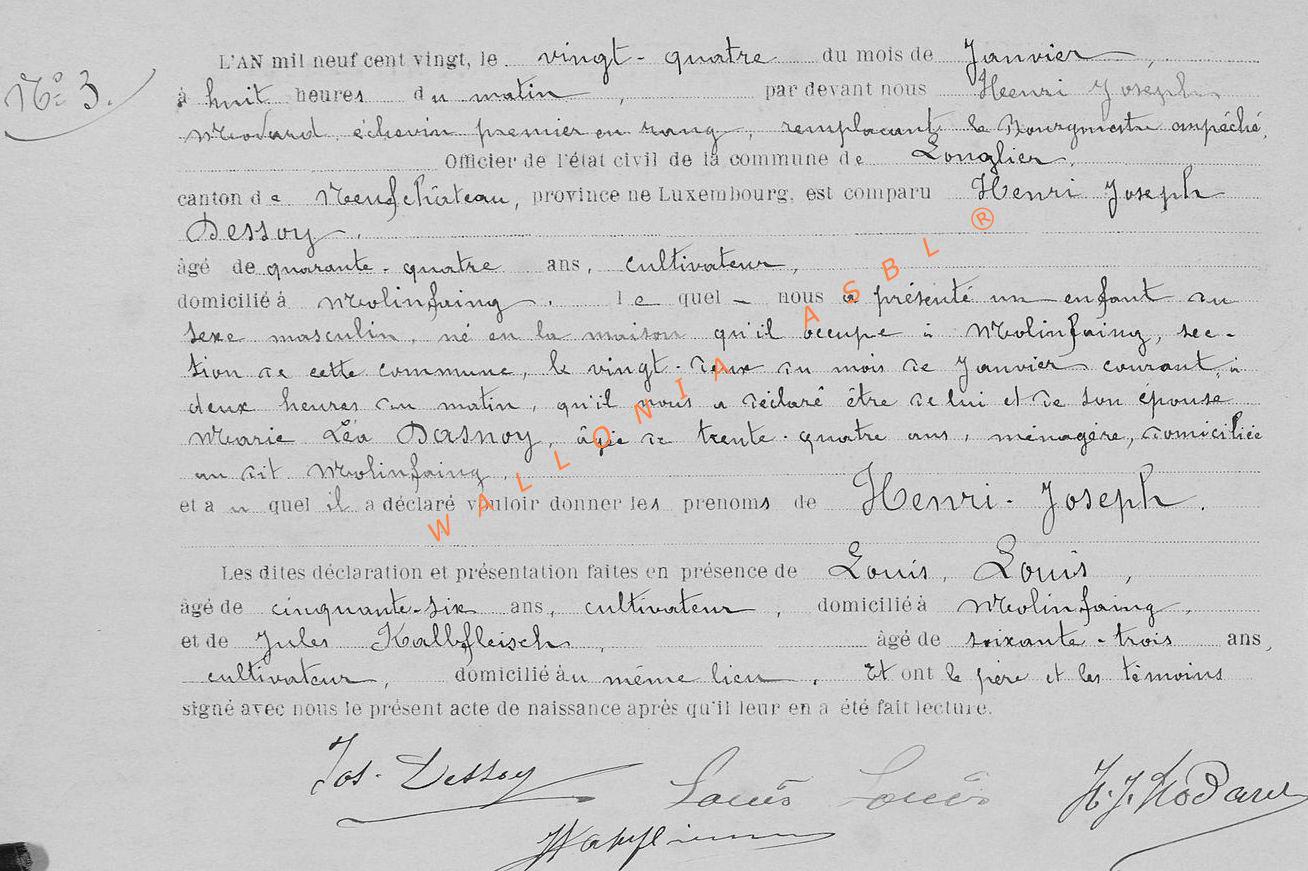 L'AN mil neuf cent vingt, le vingt-quatre du mois de Janvier,
N° 3.
à huit heures du matin, par devant nous Henri Joseph
Modard, échevin premier en rang, remplaçant le Bourgmestre empêché,
Officier de l'état civil de la commune de Longlier,
canton de Neufchâteau, province de Luxembourg, est comparu Henri Joseph
Dessoy,
âgé de quarante-quatre ans, cultivateur,
domicilié à Molinfaing, lequel nous a présenté un enfant du
sexe masculin, né en la maison qu'il occupe à Molinfaing, sec-
tion de cette commune, le vingt-deux du mois de Janvier courant, à
deux heures du matin, qu'il nous a déclaré être de lui et de son épouse
Marie Léa Dasnoy, âgée de trente-quatre ans, ménagère, domiciliée
au dit Molinfaing,
et au quel il a déclaré vouloir donner les prenoms de Henri-Joseph.
Les dites déclaration et présentation faites en présence de Louis, Louis,
âgé de cinquante-six ans, cultivateur, domicilié à Molinfaing,
et de Jules Kalbfleisch, âgé de soixante-trois ans,
cultivateur, domicilié au même lieu. Et ont le père et les témoins
signé avec nous le présent acte de naissance après qu'il leur en a été fait lecture.
Jos. Dessoy Louis Louis H. J. Modard
WALLONIA ASBL ®